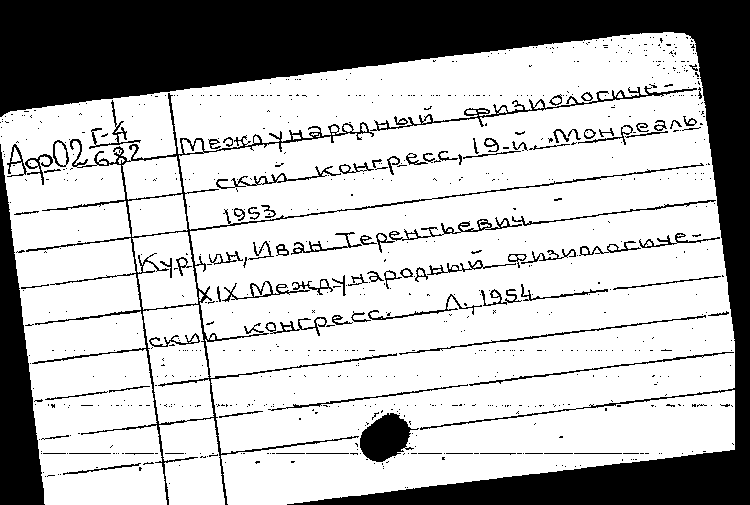 Аф02 Г-4/682
Международный физиологиче-
ский конгресс, 19-й. Монреаль.
1953.
Курцин, Иван Терентьевич. -
XIX Международный физиологиче-
ский конгресс. Л., 1954.